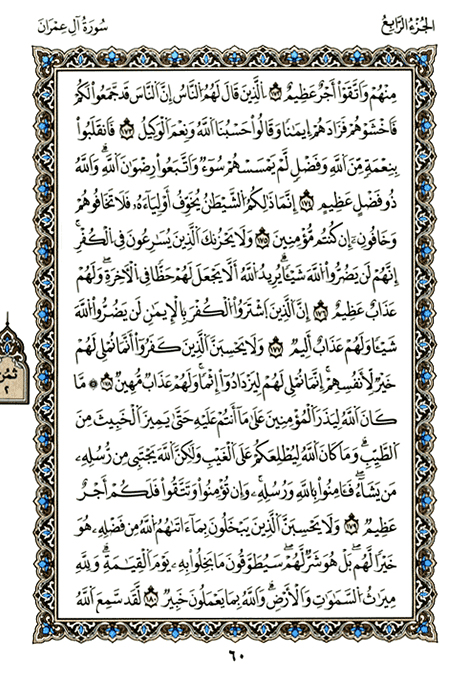 الجُزءُ الرَّابِعُ
سُورَةُ آلِ عِمْرَانَ
مِنْهُمْ وَاتَّقَوْا۟ أَجْرٌ عَظِيمٌ ١٧٢ الَّذِينَ قَالَ لَهُمُ النَّاسُ إِنَّ النَّاسَ قَدْ جَمَعُوا۟ لَكُمْ
فَاخْشَوْهُمْ فَزَادَهُمْ إِيمَٰنًا وَقَالُوا۟ حَسْبُنَا اللَّهُ وَنِعْمَ الْوَكِيلُ ١٧٣ فَانقَلَبُوا۟
بِنِعْمَةٍ مِّنَ اللَّهِ وَفَضْلٍ لَّمْ يَمْسَسْهُمْ سُوٓءٌ وَاتَّبَعُوا۟ رِضْوَٰنَ اللَّهِ ۗ وَاللَّهُ
ذُو فَضْلٍ عَظِيمٍ ١٧٤ إِنَّمَا ذَٰلِكُمُ الشَّيْطَٰنُ يُخَوِّفُ أَوْلِيَآءَهُۥ فَلَا تَخَافُوهُمْ
وَخَافُونِ إِن كُنتُم مُّؤْمِنِينَ ١٧٥ وَلَا يَحْزُنكَ الَّذِينَ يُسَٰرِعُونَ فِى الْكُفْرِ ۚ
إِنَّهُمْ لَن يَضُرُّوا۟ اللَّهَ شَيْـًٔا ۗ يُرِيدُ اللَّهُ أَلَّا يَجْعَلَ لَهُمْ حَظًّا فِى الْءَاخِرَةِ ۖ وَلَهُمْ
عَذَابٌ عَظِيمٌ ١٧٦ إِنَّ الَّذِينَ اشْتَرَوُا۟ الْكُفْرَ بِالْإِيمَٰنِ لَن يَضُرُّوا۟ اللَّهَ
شَيْـًٔا وَلَهُمْ عَذَابٌ أَلِيمٌ ١٧٧ وَلَا يَحْسَبَنَّ الَّذِينَ كَفَرُوٓا۟ أَنَّمَا نُمْلِى لَهُمْ
خَيْرٌ لِّأَنفُسِهِمْ ۚ إِنَّمَا نُمْلِى لَهُمْ لِيَزْدَادُوٓا۟ إِثْمًا ۚ وَلَهُمْ عَذَابٌ مُّهِينٌ ١٧٨ مَّا
كَانَ اللَّهُ لِيَذَرَ الْمُؤْمِنِينَ عَلَىٰ مَآ أَنتُمْ عَلَيْهِ حَتَّىٰ يَمِيزَ الْخَبِيثَ مِنَ
الطَّيِّبِ ۗ وَمَا كَانَ اللَّهُ لِيُطْلِعَكُمْ عَلَى الْغَيْبِ وَلَٰكِنَّ اللَّهَ يَجْتَبِى مِن رُّسُلِهِۦ
مَن يَشَآءُ ۖ فَـَٔامِنُوا۟ بِاللَّهِ وَرُسُلِهِۦ ۚ وَإِن تُؤْمِنُوا۟ وَتَتَّقُوا۟ فَلَكُمْ أَجْرٌ
عَظِيمٌ ١٧٩ وَلَا يَحْسَبَنَّ الَّذِينَ يَبْخَلُونَ بِمَآ ءَاتَىٰهُمُ اللَّهُ مِن فَضْلِهِۦ هُوَ
خَيْرًا لَّهُم ۖ بَلْ هُوَ شَرٌّ لَّهُمْ ۖ سَيُطَوَّقُونَ مَا بَخِلُوا۟ بِهِۦ يَوْمَ الْقِيَٰمَةِ ۗ وَلِلَّهِ
مِيرَٰثُ السَّمَٰوَٰتِ وَالْأَرْضِ ۗ وَاللَّهُ بِمَا تَعْمَلُونَ خَبِيرٌ ١٨٠ لَّقَدْ سَمِعَ اللَّهُ
٦٠